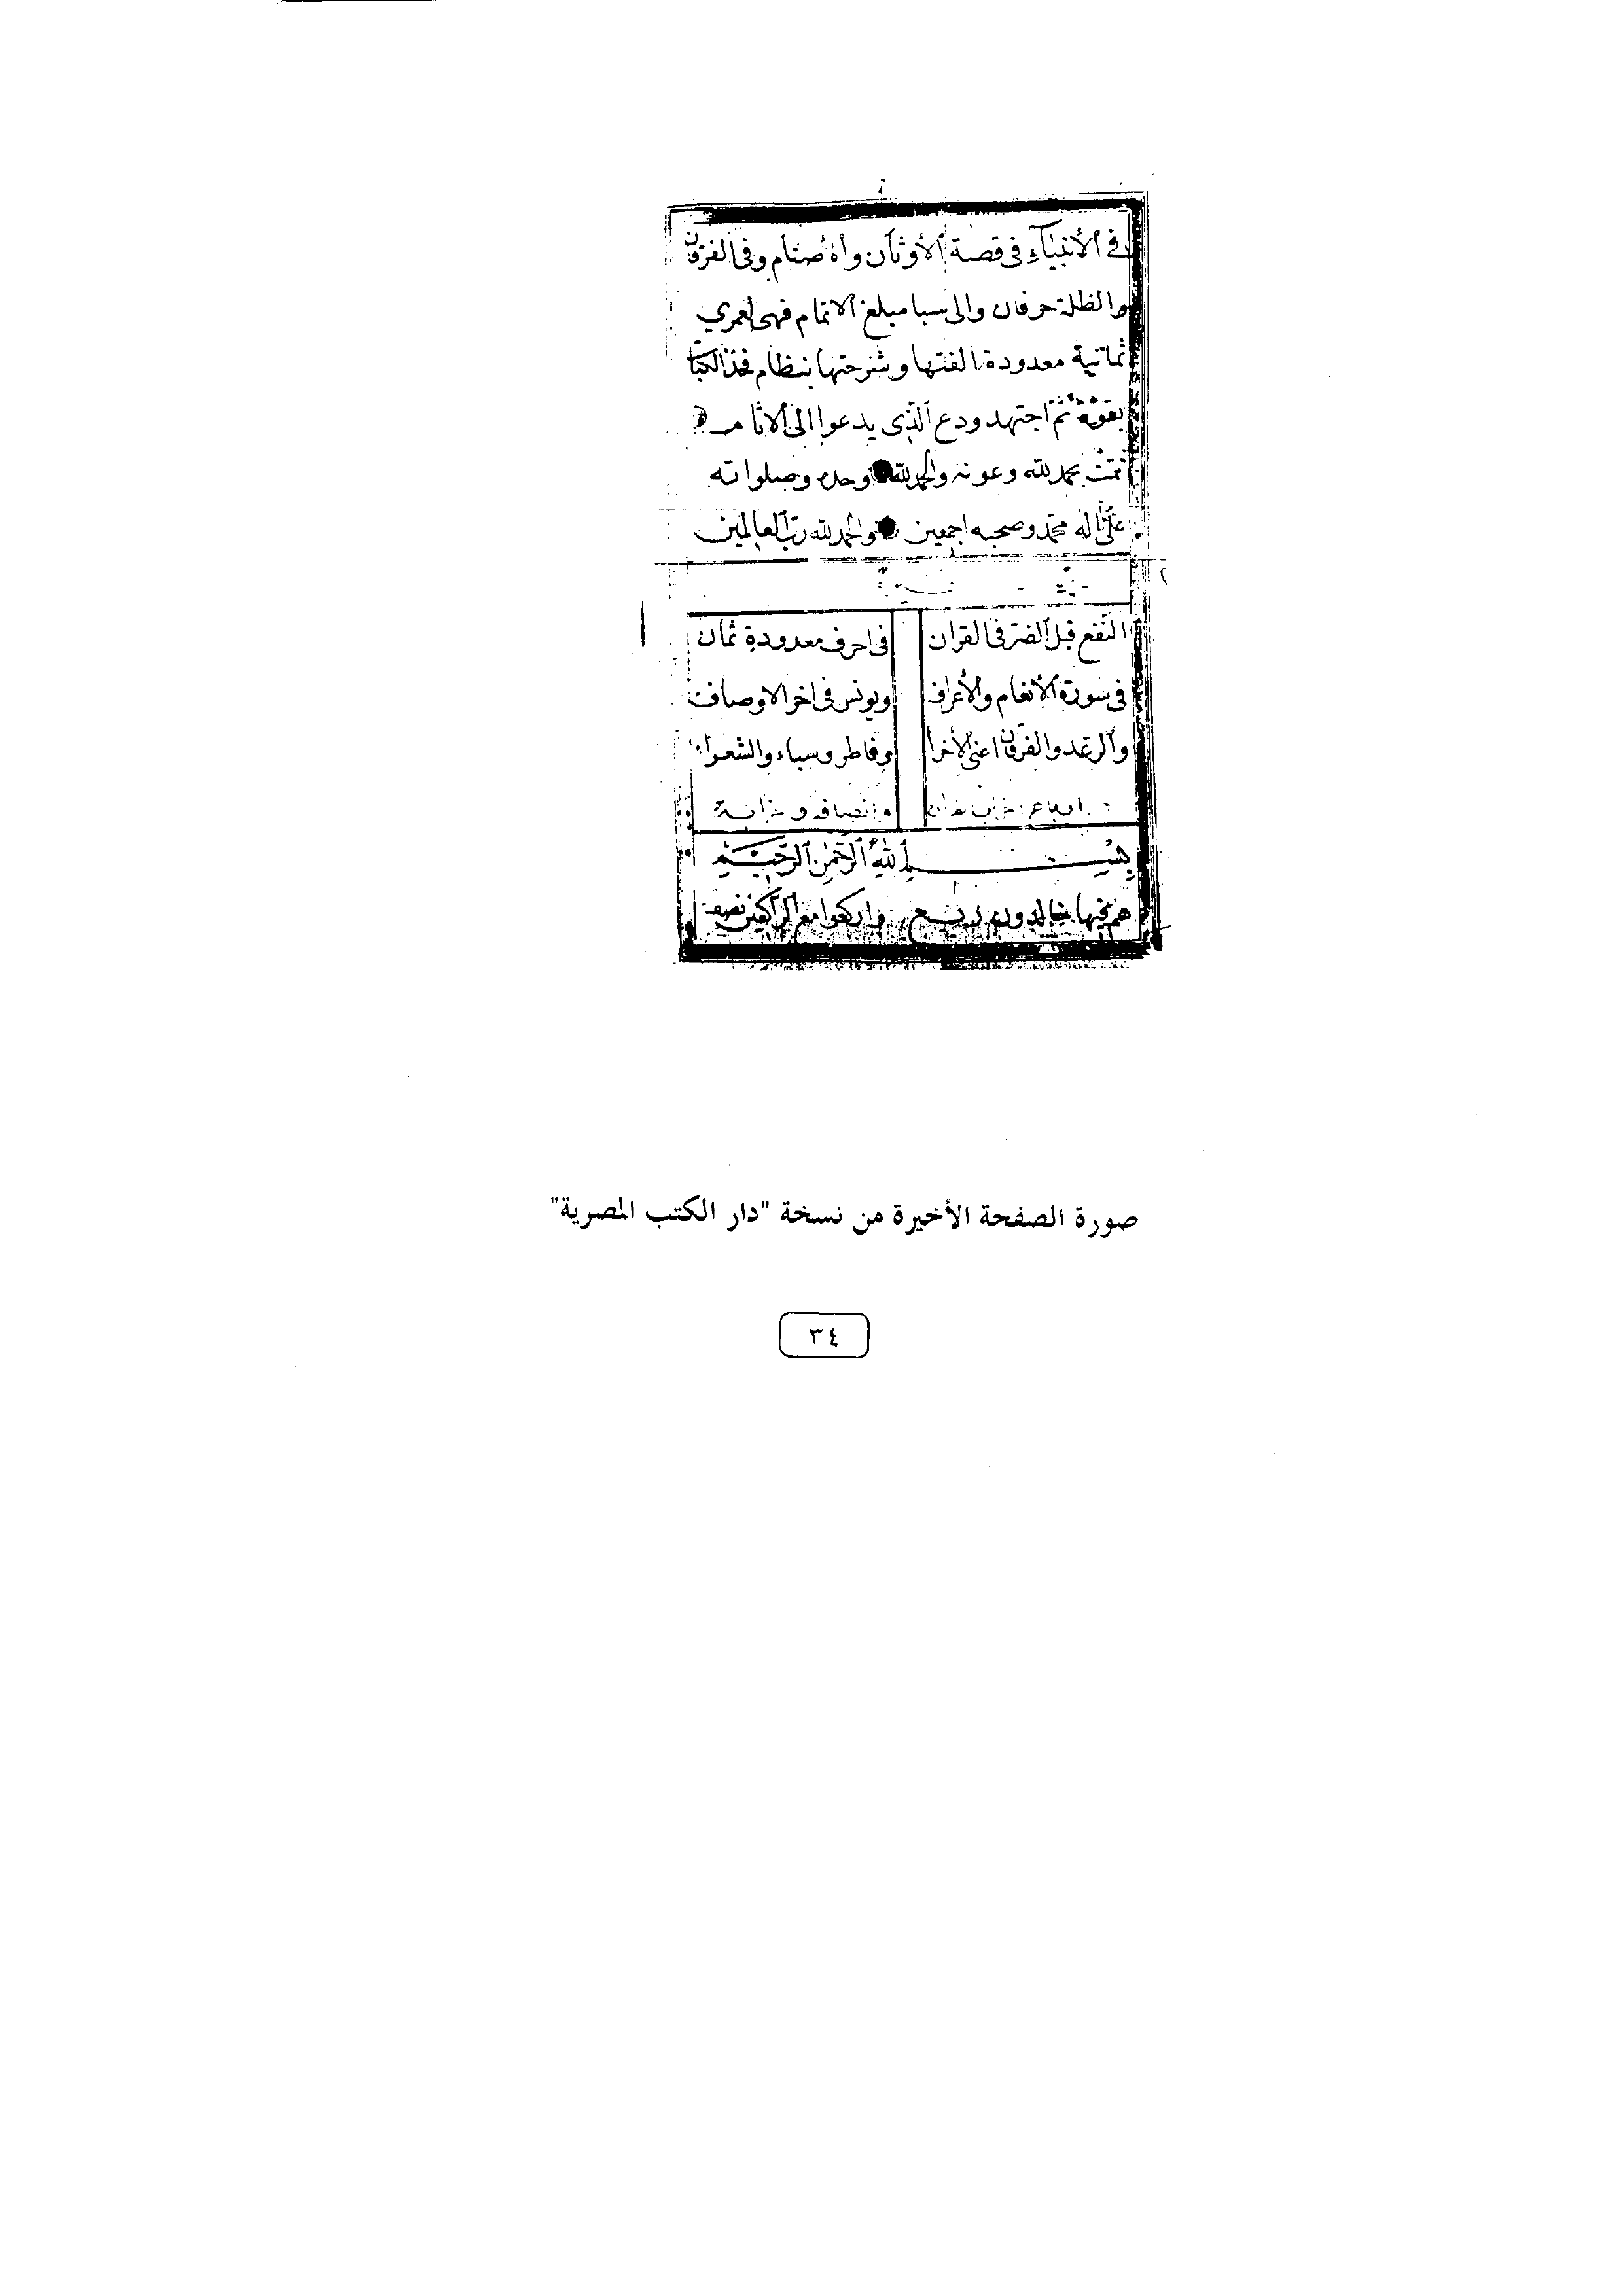 في الأنبياء في قصة الأوثان وأصنام وفى الفرقان
والظلة حرفان والى سبا مبلغ الاتمام فهى لعمري
ثمانية معدودة الفتها وشرحتها بنظام فخذ الكتاب
بقوة ثم اجتهد ودع الذى يدعوا الى الاثام
تمت بحمد لله وعونه والحمد لله وحده وصلواته
على اله محمد وصحبه اجمعين والحمد لله رب العالمين
النفع قبل الضر فى القران في احرف معدودة ثمان
فى سورة الأنعام والأعراف ويونس فى اخر الاوصاف
والرعد والفرقان اعنى الأخرا وفاطر وسباء والشعرا
بسم الله الرحمن الرحيم
هم فيها خالدون ربع واركعوا مع الراكعين نصف
صورة الصفحة الأخيرة من نسخة "دار الكتب المصرية"
٣٤